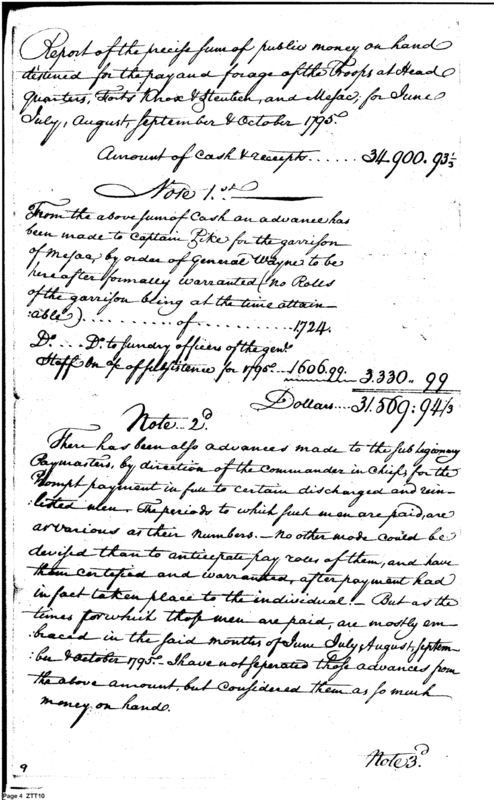 Report of the precise sum of public money on hand
distined for the pay and forage of the Troops at Head
quarters, Forts Knox & Steuben, and Mesac; for June
July, August, September & October 1795.
Amount of Cash & receipts...... 34.900.93 1/3
Note 1.st
From the above sum of Cash an advance has
been made to Captain Pike for the garrison
of Mesac, by order of General Wayne to be
hereafter formally warranted (No Rolls
of the garrison being at the time attain-
:able)............of............1.724.
Do... Do. to sundry officers of the genl.
Staff on a/c of subsistence for 1795...1606.99. 3.330..99
Dollars....31.569:94 1/3
Note 2d.
There has been also advances made to the sub Legionary
Paymasters, by direction of the commander in Chief, for the
Prompt payment in full to certain discharged and rein-
:listed men. The periods to which such men are paid, are
as various as their numbers.— No other mode could be
devised than to anticipate pay roles of them, and have
them certified and warranted, after payment had
in fact taken place to the individual.— But as the
times for which thos men are paid, are mostly em-
:braced in the said months of June July, August, Septem-
:ber & October 1795. I have not seperated those advances from
the above amount, but considered them as so much
money on hand.
Note 3.d
9
Page 4 ZTT10